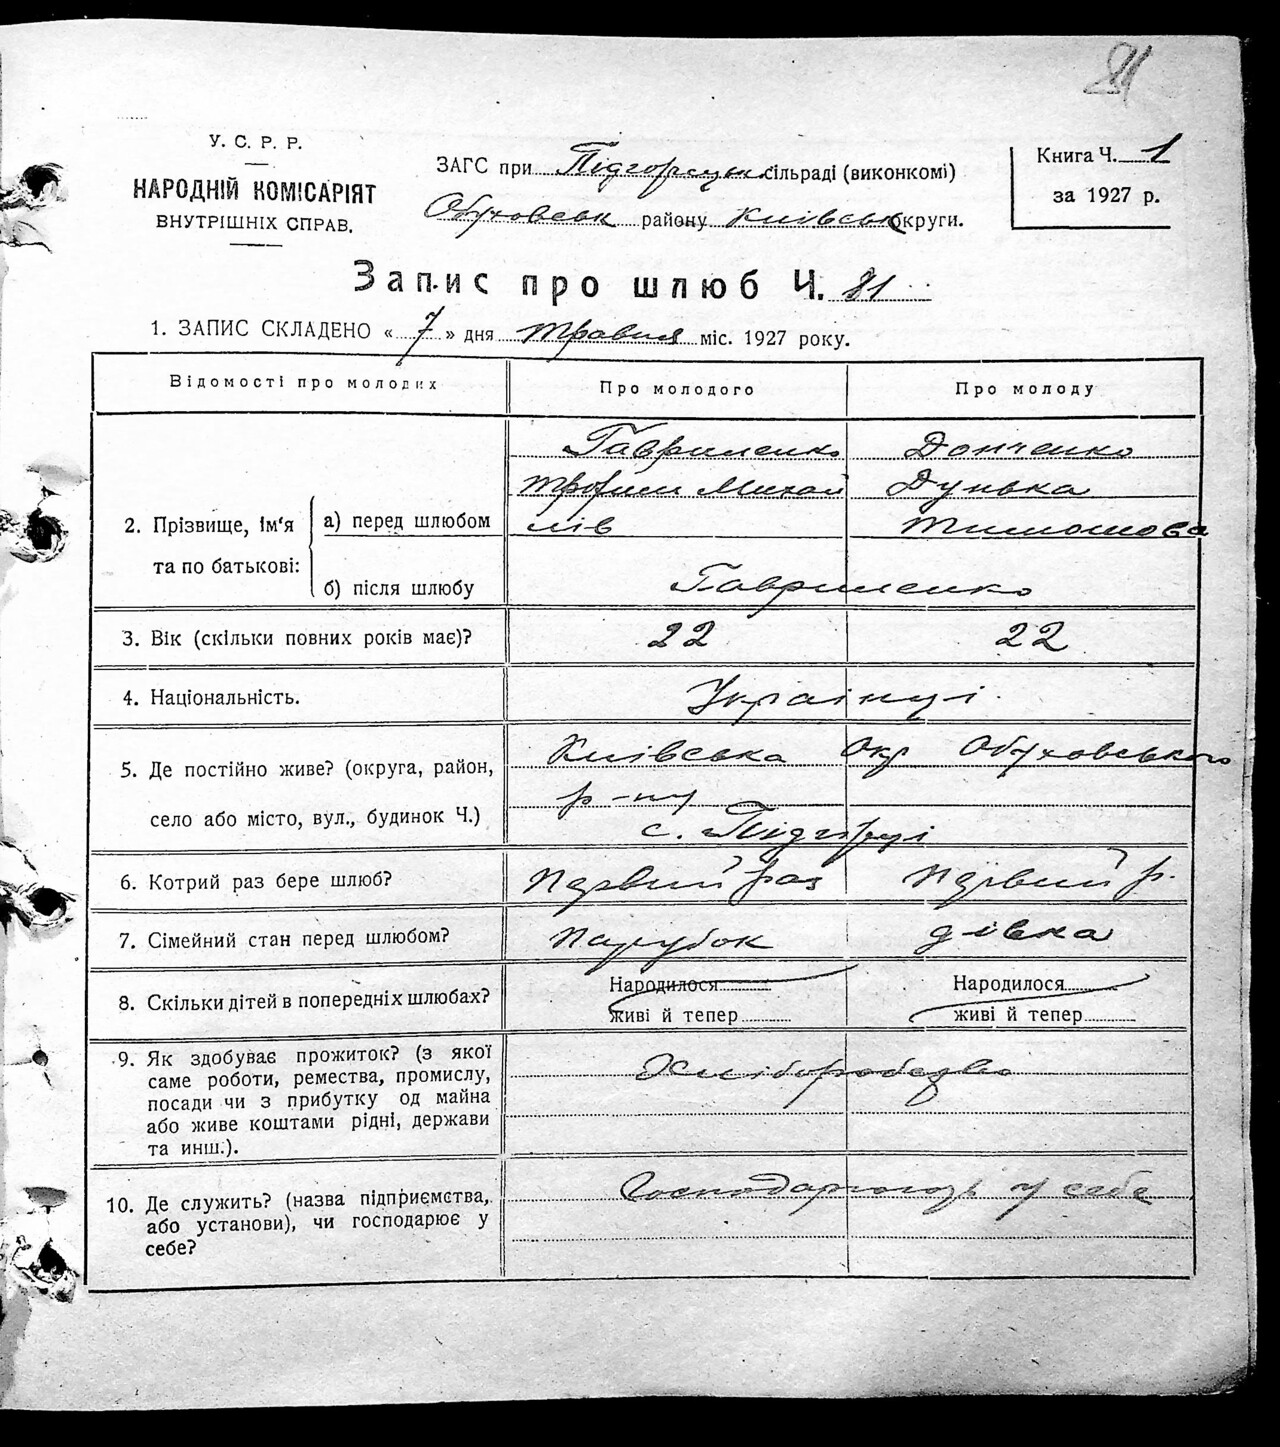 81
У. С. Р. Р.
НАРОДНІЙ КОМІСАРІЯТ
ВНУТРІШНІХ СПРАВ.
ЗАГС при Підгорецьк сільраді (виконкомі)
Обуховськ району Київськ округи.
Книга Ч. 1
за 1927 р.
Запис про шлюб Ч. 81
1. ЗАПИС СКЛАДЕНО « 7 » дня травня міс. 1927 року.
Відомості про молодих Про молодого Про молоду
Гавриленко Донченко
Трофим Михай Дунька
2. Прізвище, ім'я та по батькові: а) перед шлюбом лів Тимошова
б) після шлюбу Гавриленко
3. Вік (скільки повних років має)? 22 22
4. Національність. Українці
5. Де постійно живе? (округа, район, Київська Окр Обуховського
р-ну
село або місто, вул., будинок Ч.) с. Підгірці
6. Котрий раз бере шлюб? Первий раз Первий р.
7. Сімейний стан перед шлюбом? парубок дівка
8. Скільки дітей в попередніх шлюбах? Народилося Народилося
живі й тепер живі й тепер
9. Як здобуває прожиток? (з якої Хліборобство
саме роботи, ремества, промислу,
посади чи з прибутку од майна
або живе коштами рідні, держави
та инш.).
10. Де служить? (назва підприємства, Господарюють у себе
або установи), чи господарює у
себе?